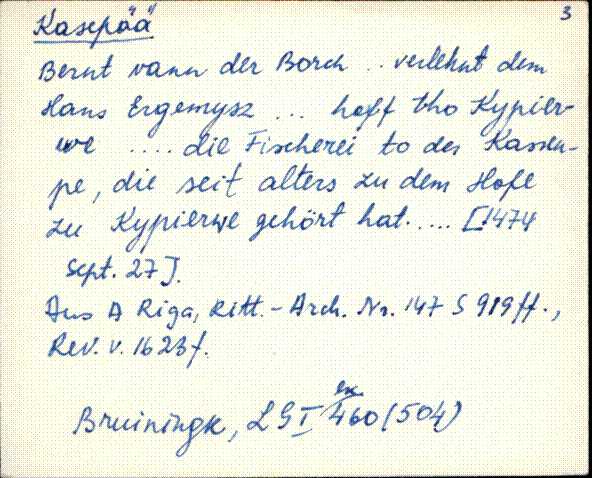 3
Kasepää
Bernt vann der Borch .. verlehnt dem
Hans Ergemysz ... hoff tho Kypier-
we .... die Fischerei to der Kassen-
pe, die seit alters zu dem Hofe
zu Kypierwe gehört hat..... [1474
Sept. 27].
Aus A Riga, Ritt.-Arch. Nr. 147 S 919 ff.,
Rev. v. 1623 f.
Bruiningk, LG I 460 (504)